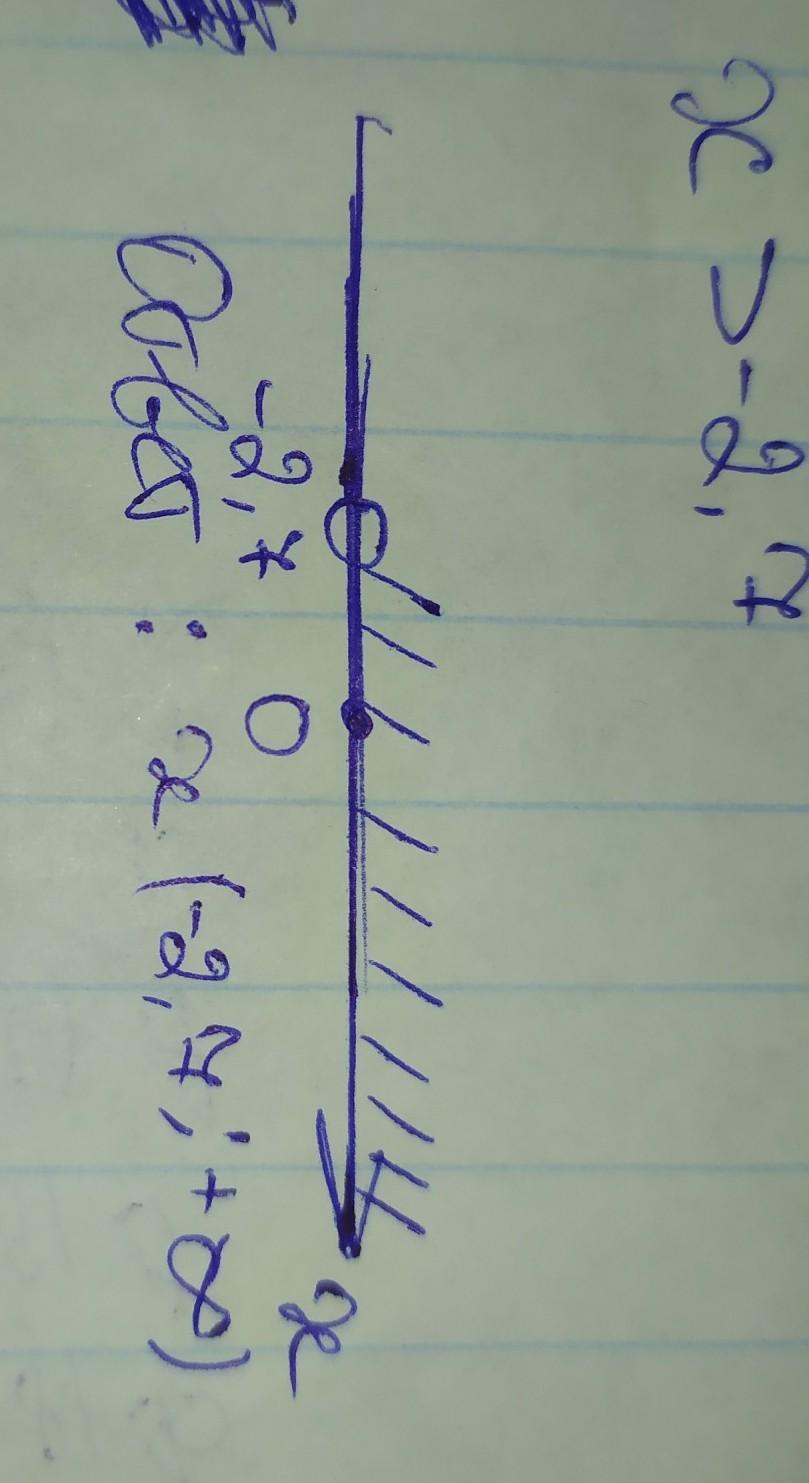 x > -2,7
-2,7 0 x
Ответ: x (-2,7; +∞)